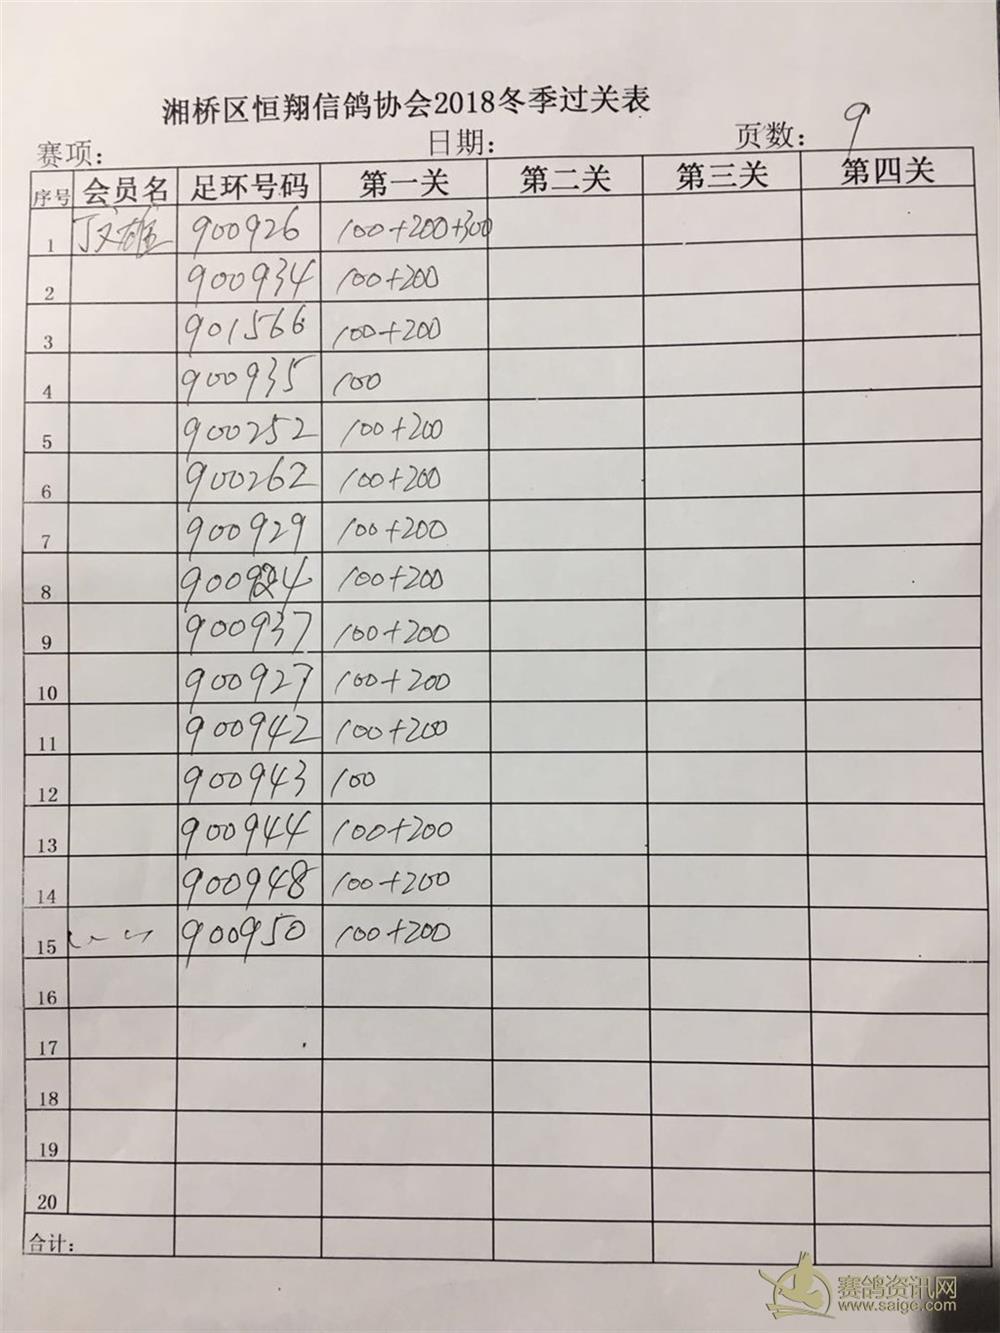 湘桥区恒翔信鸽协会2018冬季过关表
赛项： 日期： 页数： 9
序号 会员名 足环号码 第一关 第二关 第三关 第四关
1 丁文雄 900926 100+200+300
2 900934 100+200
3 901566 100+200
4 900935 100
5 900252 100+200
6 900262 100+200
7 900929 100+200
8 900924 100+200
9 900937 100+200
10 900927 100+200
11 900942 100+200
12 900943 100
13 900944 100+200
14 900948 100+200
15 900950 100+200
16
17
18
19
20
合计：
赛鸽资讯网
www.saige.com